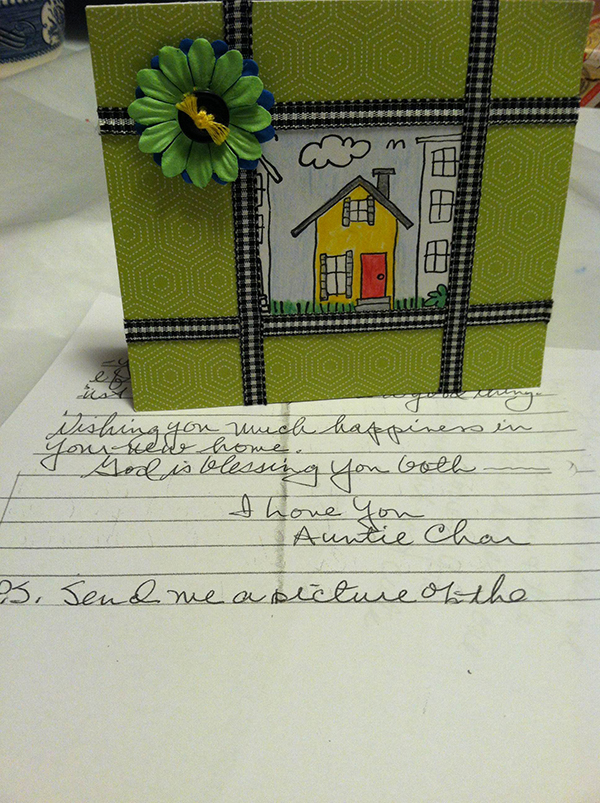 a good thing.
Wishing you much happiness in
your new home.
God is blessing you both
I love you
Auntie Char
P.S. Send me a picture of the